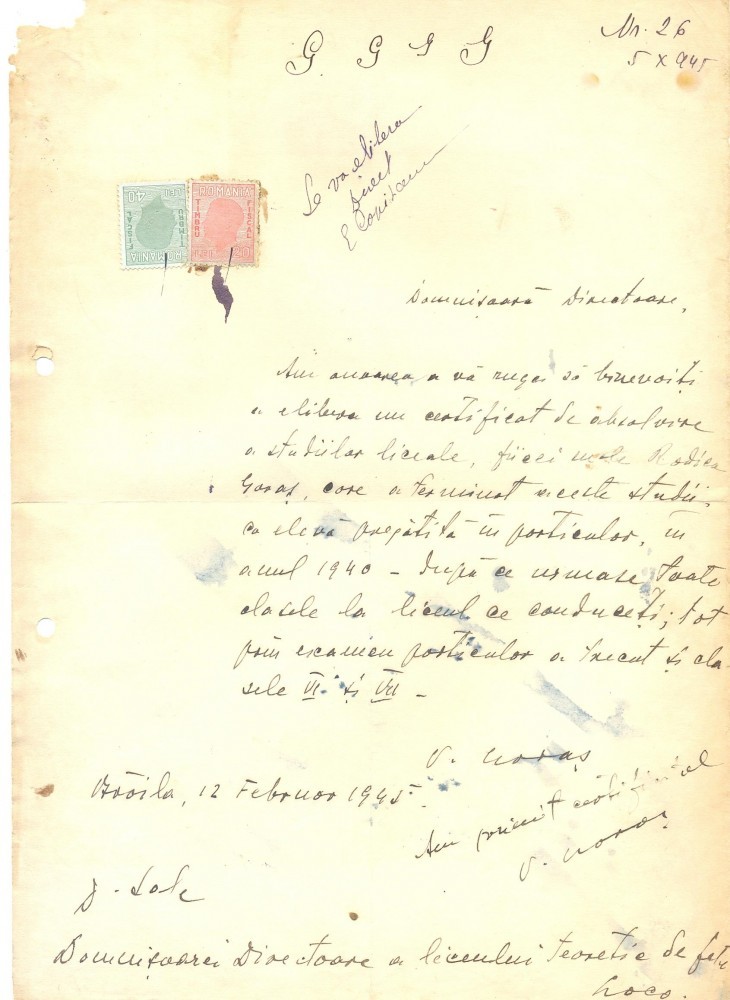 Nr. 26
5 X 945
G. G G G
Se va elibera
Direct
ROMANIA
TIMBRU
FISCAL
40 LEI
ROMANIA
TIMBRU
FISCAL
20 LEI
Domnișoară Directoare,
Am onoarea a vă ruga să binevoiți
a elibera un certificat de absolvire
a studiilor liceale, fiicei mele Rodica
Noraș, care a terminat aceste studii,
ca elevă pregătită în particular, în
anul 1940 - După ce urmase toate
clasele la liceul ce conduceți; tot
prin examen particular a trecut și cla
sele VI și VII -
V. Noraș
Brăila, 12 Februar 1945.
Am primit certificatul
V. Noraș
D-Sale
Domnișoarei Directoare a liceului teoretic de fete
Loco.